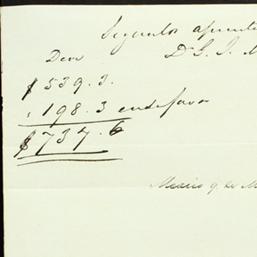 Segun los apunte
Deve D. L. J. M
$ 539.3.
" 198.3 en su favor
$ 737.6
Mexico 9 de M